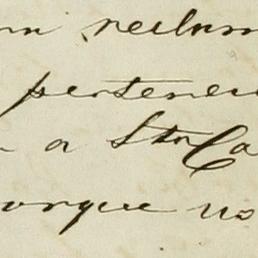 reclam
pertenec
a Sta Ca
porque no